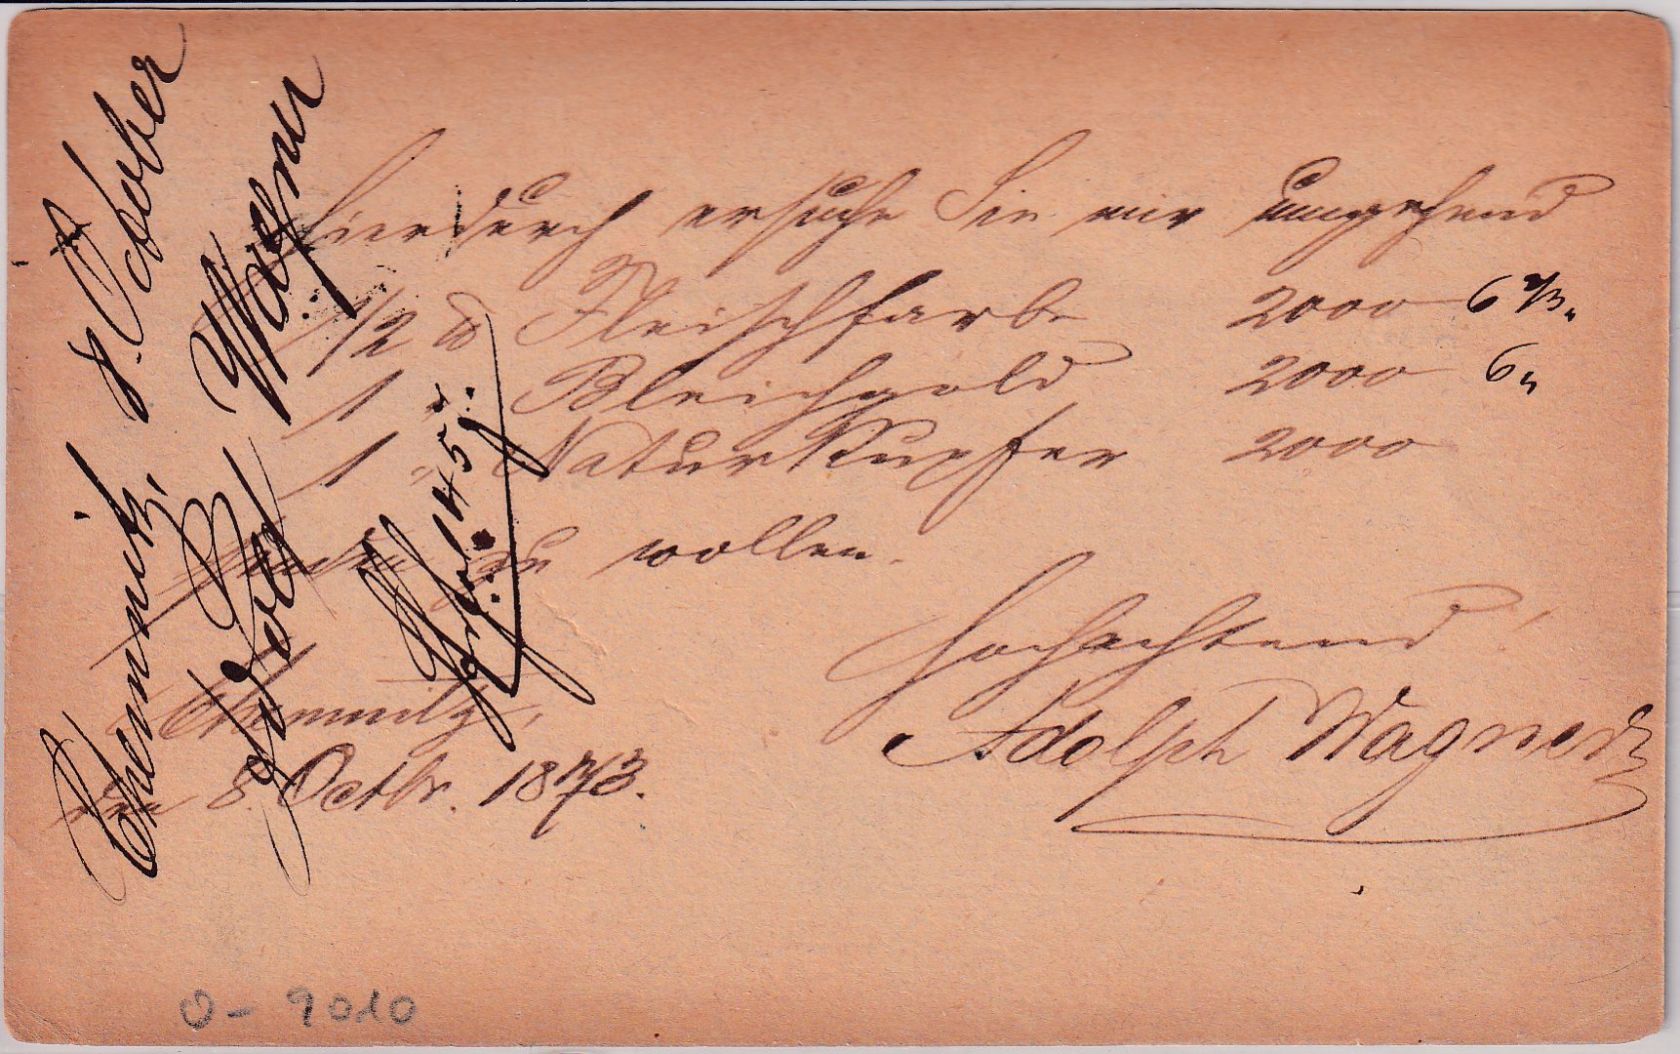 Hierdurch ersuche Sie mir umgehend
1/2 ℔ Fleischfarbe 2000 6 2/3 "
1 " Bleichgold 2000 6 "
1 " Natur Kupfer 2000
senden zu wollen.
Hochachtend
Adolph Wagner
Chemnitz,
den 8. Octbr. 1873.
Chemnitz, 8. October
Adolf Wagner
fol 1455
0 - 9010